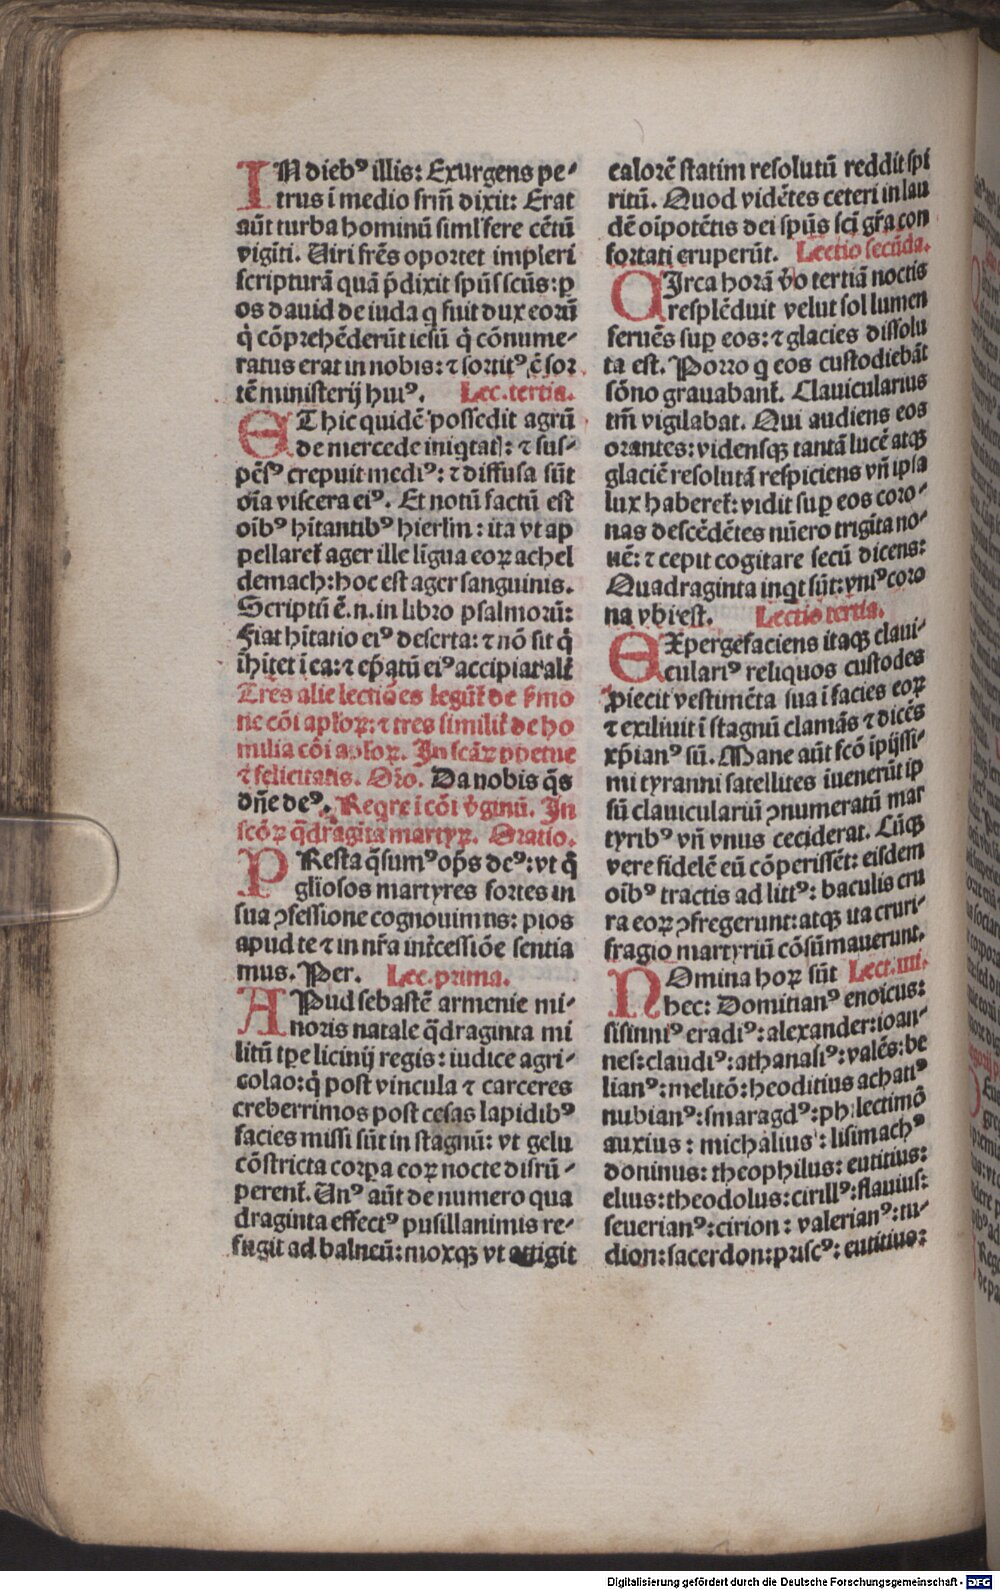 IN diebꝰ illis: Exurgens pe⸗
trus ī medio frm̄ dixit: Erat
aūt turba hominū siml̓ fere cētū
vigīti. Uiri frēs oportet impleri
scripturā quā p̄dixit spūs scūs: ꝑ
os dauid de iuda q̄ fuit dux eorū
q̄ cōprehēderūt iesū q̄ cōnume⸗
ratus erat in nobis: ⁊ sortitꝰ ē sor
tē ministerij huiꝰ. Lec. tertia.
ET hic quidē possedit agrū
de mercede iniqtatꝭ: ⁊ sus⸗
pēsꝰ crepuit mediꝰ: ⁊ diffusa sūt
oīa viscera eiꝰ. Et notū factū est
oībꝰ hītantibꝰ hierlm̄: ita vt ap
pellaret᷑ ager ille līgua eoꝝ achel
demach: hoc est ager sanguinis.
Scriptū ē.n. in libro psalmorū:
Fiat hītatio eiꝰ deserta: ⁊ nō sit q̄
īhitet ī ea: ⁊ ep̄atū eiꝰ accipiat alt᷑
Tres alie lectiōes legūt᷑ de s̓mo
ne cōi apl̓oꝝ: ⁊ tres similit᷑ de ho
milia cōi apl̓oꝝ. In scāꝝ ꝑpetue
⁊ felicitatis. Oro. Da nobis q̄s
dn̄e deꝰ. Reqre ī cōi v̓ginū. In
scōꝝ q̄dragīta martyꝝ. Oratio.
PResta q̄sumꝰ op̄s deꝰ: vt q̄
gliosos martyres fortes in
sua ꝯfessione cognouimus: pios
apud te ⁊ in nr̄a int̓cessiōe sentia
mus. Per. Lec. prima.
APud sebastē armenie mi⸗
noris natale q̄draginta mi
litū tꝑe licinij regis: iudice agri⸗
colao: q̄ post vincula ⁊ carceres
creberrimos post cesas lapidibꝰ
facies missi sūt in stagnū: vt gelu
cōstricta corpa eoꝝ nocte disrū⸗
perent᷑. Unꝰ aūt de numero qua
draginta effectꝰ pusillanimis re⸗
fugit ad balneū: moxqꝫ vt attigit
calorē statim resolutū reddit spi
ritū. Quod vidētes ceteri in lau
dē oīpotētis dei spūs scī gr̄a con
fortati eruperūt. Lectio secūda.
CIrca horā v̓o tertiā noctis
resplēduit velut sol lumen
feruēs suꝑ eos: ⁊ glacies dissolu
ta est. Porro q eos custodiebāt
sōno grauabant᷑. Clauicularius
tm̄ vigilabat. Qui audiens eos
orantes: vidensqꝫ tantā lucē atqꝫ
glaciē resolutā respiciens vn̄ ipsa
lux haberet᷑: vidit suꝑ eos coro⸗
nas descēdētes nūero trigīta no⸗
uē: ⁊ cepit cogitare secū dicens:
Quadraginta inqt sūt: vniꝰ coro
na vbi est. Lectio tertia.
EXpergefaciens itaqꝫ claui⸗
culariꝰ reliquos custodes
ꝓiecit vestimēta sua ī facies eoꝝ
⁊ exiliuit ī stagnū clamās ⁊ dicēs
xp̄ianꝰ sū. Mane aūt fcō īpijssi⸗
mi tyranni satellites iuenerūt ip
sū clauiculariū ꝯnumeratū mar
tyribꝰ vn̄ vnus ceciderat. Cūqꝫ
vere fidelē eū cōperissēt: eisdem
oībꝰ tractis ad littꝰ: baculis cru
ra eoꝝ ꝯfregerunt: atqꝫ ita cruri⸗
fragio martyriū cōsūmauerunt.
NOmina hoꝝ sūt Lect. iiii.
hec: Domitianꝰ enoicus:
sisinniꝰ eradiꝰ: alexander: ioan⸗
nes: claudiꝰ: athanasiꝰ: valēs: be
lianꝰ: melitō: heoditius achatiꝰ
nubianꝰ: smaragdꝰ: philectimō
auxius: michalius: lisimachꝰ
doninus: theophilus: eutitius:
elius: theodolus: cirillꝰ: flauius:
seuerianꝰ: cirion: valerianꝰ: tu⸗
dion: sacerdon: priscꝰ: eutitius:
Digitalisierung gefördert durch die Deutsche Forschungsgemeinschaft - DFG